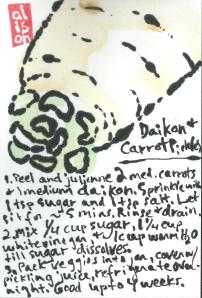 alison
Daikon &
Carrot Pickles
1. Peel and julienne 2 med. carrots
& 1 medium daikon. Sprinkle with
1 tsp sugar and 1 tsp salt. Let
sit for 5 mins. Rinse & drain.
2. mix 1/4 cup sugar, 1 1/4 cup
white vinegar & 1 cup warm H2O
till sugar dissolves.
3. Pack veggies into jar, cover w/
pickling juice, refrigerate over
night. Good up to 4 weeks.